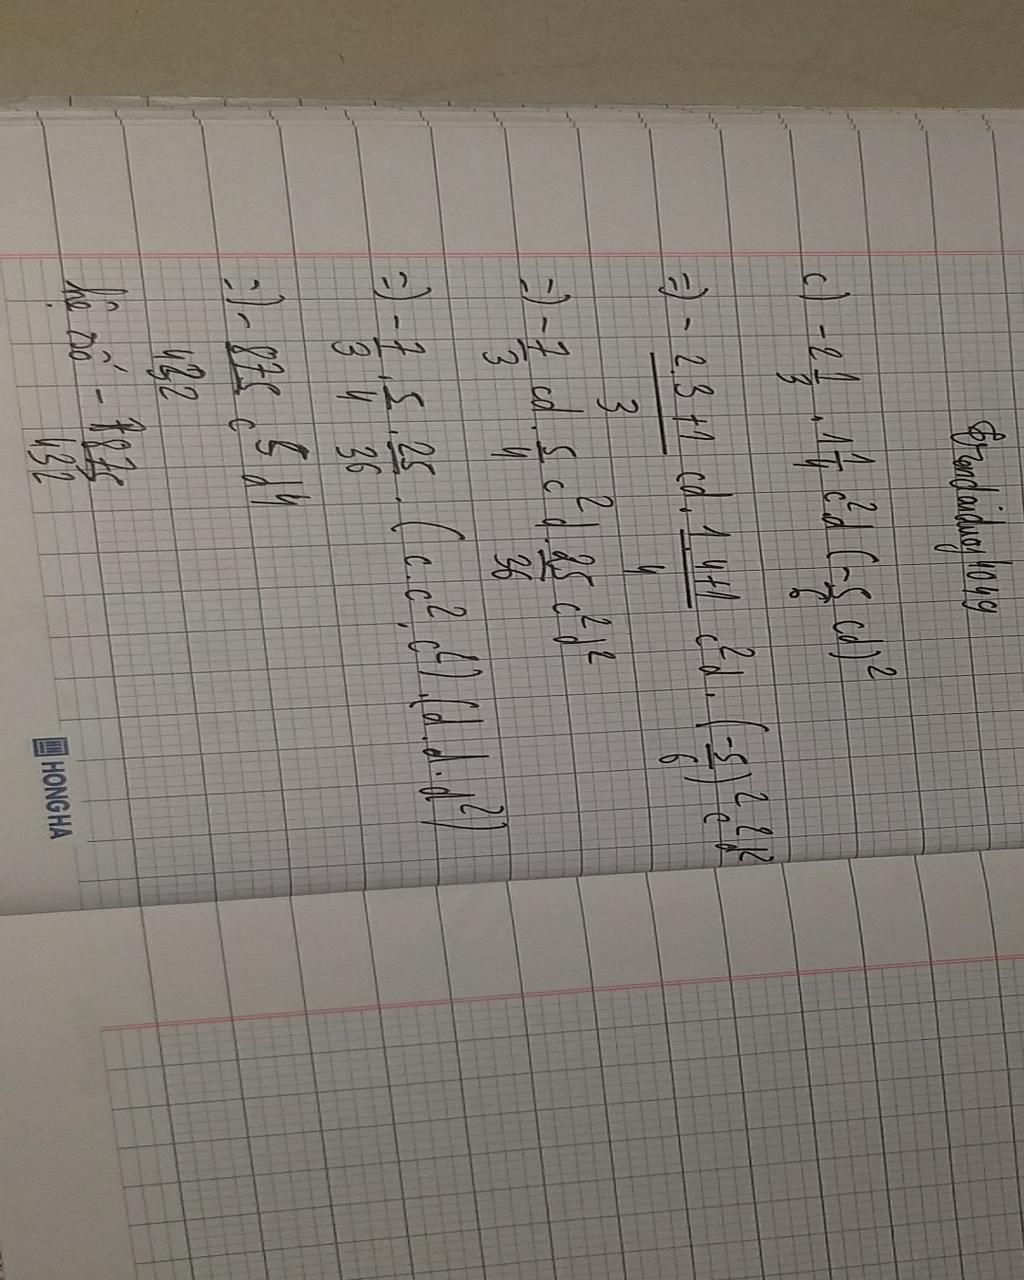 Brandaiduoj4049
c) -2 1/3 . 1 1/4 c²d (-5/6 cd)²
=) - (2.3+1)/3 cd . (1.4+1)/4 c²d . (-5/6)² c²d²
=) - 7/3 cd . 5/4 c²d . 25/36 c²d²
=) - 7/3 . 5/4 . 25/36 . (c.c².c²) . (d.d.d²)
=) - 875/432 c⁵d⁴
hệ số - 875/432
HONGHA